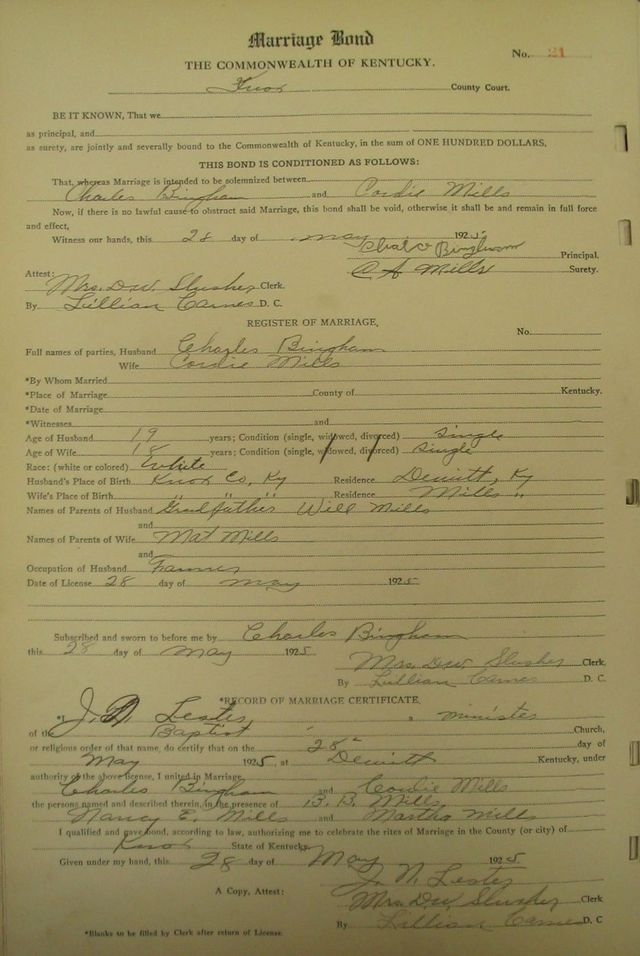 Marriage Bond
No. 21
THE COMMONWEALTH OF KENTUCKY.
Knox County Court.
BE IT KNOWN, That we
as principal, and
as surety, are jointly and severally bound to the Commonwealth of Kentucky, in the sum of ONE HUNDRED DOLLARS.
THIS BOND IS CONDITIONED AS FOLLOWS:
That, whereas Marriage is intended to be solemnized between
Charles Bingham and Cordie Mills
Now, if there is no lawful cause to obstruct said Marriage, this bond shall be void, otherwise it shall be and remain in full force
and effect,
Witness our hands, this 28 day of may 1925
Bingham Principal.
Attest: C A Mills Surety.
Mrs. DW. Slusher Clerk.
By Lillian Carnes D. C.
REGISTER OF MARRIAGE,
No.
Full names of parties, Husband Charles Bingham
Wife Cordie Mills
*By Whom Married
*Place of Marriage County of Kentucky.
*Date of Marriage
*Witnesses and
Age of Husband 19 years; Condition (single, widowed, divorced) Single
Age of Wife 18 years; Condition (single, widowed, divorced) Single
Race: (white or colored) White
Husband's Place of Birth Knox Co, Ky Residence Dewitt, Ky
Wife's Place of Birth " " " Residence Mills "
Names of Parents of Husband Grandfather Will Mills
and
Names of Parents of Wife Mat Mills
and
Occupation of Husband Farmer
Date of License 28 day of may 1925
Subscribed and sworn to before me by Charles Bingham
this 28 day of may 1925
Mrs. DW. Slusher Clerk.
By Lillian Carnes D. C.
*RECORD OF MARRIAGE CERTIFICATE.
*I J. N. Lester, a minister
of the Baptist Church,
or religious order of that name, do certify that on the 28" day of
May 1925, at Dewitt Kentucky, under
authority of the above license, I united in Marriage
Charles Bingham and Cordie Mills
the persons named and described therein, in the presence of B. B. Mills,
Nancy E. Mills and Martha Mills
I qualified and gave bond, according to law, authorizing me to celebrate the rites of Marriage in the County (or city) of
Knox State of Kentucky.
Given under my hand, this 28 day of May 1925
J. N. Lester
A Copy, Attest: Mrs. DW. Slusher Clerk
By Lillian Carnes D. C
*Blanks to be filled by Clerk after return of License